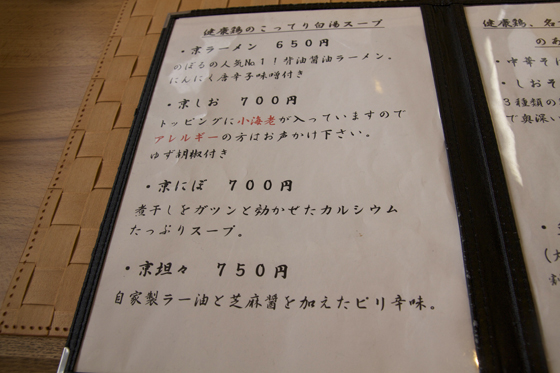 健康鶏のこってり白湯スープ
・京ラーメン 650円
のぼるの人気No.1！背油醤油ラーメン。
にんにく唐辛子味噌付き
・京しお 700円
トッピングに小海老が入っていますので
アレルギーの方はお声かけ下さい。
ゆず胡椒付き
・京にぼ 700円
煮干しをガツンと効かせたカルシウム
たっぷりスープ。
・京坦々 750円
自家製ラー油と芝麻醤を加えたピリ辛味。
健康鶏、名
のあ
・中華そ
・しおそ
３種類の
で奥深い